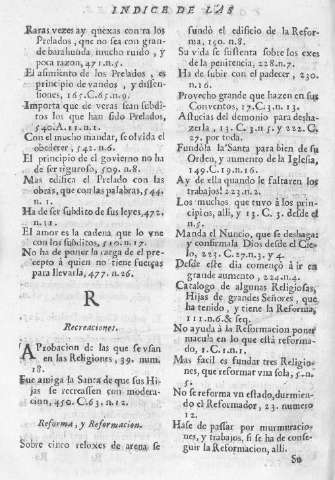 INDICE DE LAS
Raras vezes ay quexas contra los
Prelados, que no sea con gran-
de barahunda, mucho ruido, y
poca razon, 471. n.5.
El asimiento de los Prelados, es
principio de vandos, y dissen-
siones, 165. C.65. n.9.
Importa que de veras sean subdi-
tos los que han sido Prelados,
540. A.11. n.1.
Con el mucho mandar, se olvida el
obedecer, 542. n.6.
El principio de el govierno no ha
de ser riguroso, 509. n.8.
Mas edifica el Prelado con las
obras, que con las palabras, 544.
n.1.
Ha de ser subdito de sus leyes, 472.
n.11.
El amor es la cadena que lo vne
con los subditos, 510. n.17.
No ha de poner la carga de el pre-
cepto à quien no tiene fuerças
para llevarla, 477. n.26.
R
Recreaciones.
APobacion de las que se vsan
en las Religiones, 39. num.
18.
Fue amiga la Santa de que sus Hi-
jas se recreassen con modera-
cion, 450. C.63. n.12.
Reforma, y Reformacion.
Sobre cinco reloxes de arena se
fundò el edificio de la Refor-
ma, 150. n.8.
Su vida se sustenta sobre los exes
de la penitencia, 228. n.7.
Ha de subir con el padecer, 230.
n.16.
Provecho grande que hazen en sus
Conventos, 17. C.3. n.13.
Astucias del demonio para desha-
zerla, 13. C.3. n.5. y 222. C.
27. por toda.
Fundòla la Santa para bien de su
Orden, y aumento de la Iglesia,
149. C.19. n.16.
Ay de ella quando le faltaren los
trabajos! 223. n.2.
Los muchos que tuvo à los prin-
cipios, alli, y 13. C. 3. desde el
n.5.
Manda el Nuncio, que se deshaga;
y confirmala Dios desde el Cie-
lo, 223. C.27. n.3. y 4.
Desde este dia començò à ir en
grande aumento, 224. n.4.
Catalogo de algunas Religiosas,
Hijas de grandes Señores, que
ha tenido, y tiene la Reforma,
111. n.6. & seq.
No ayuda à la Reformacion poner
macula en lo que està reforma-
do, 1. C.1. n.1.
Mas facil es fundar tres Religio-
nes, que reformar vna sola, 5. n.
5.
No se reforma vn estado, durmien-
do el Reformador, 23. numero
12.
Hase de passar por murmuracio-
nes, y trabajos, si se ha de conse-
guir la Reformacion, alli.
Su